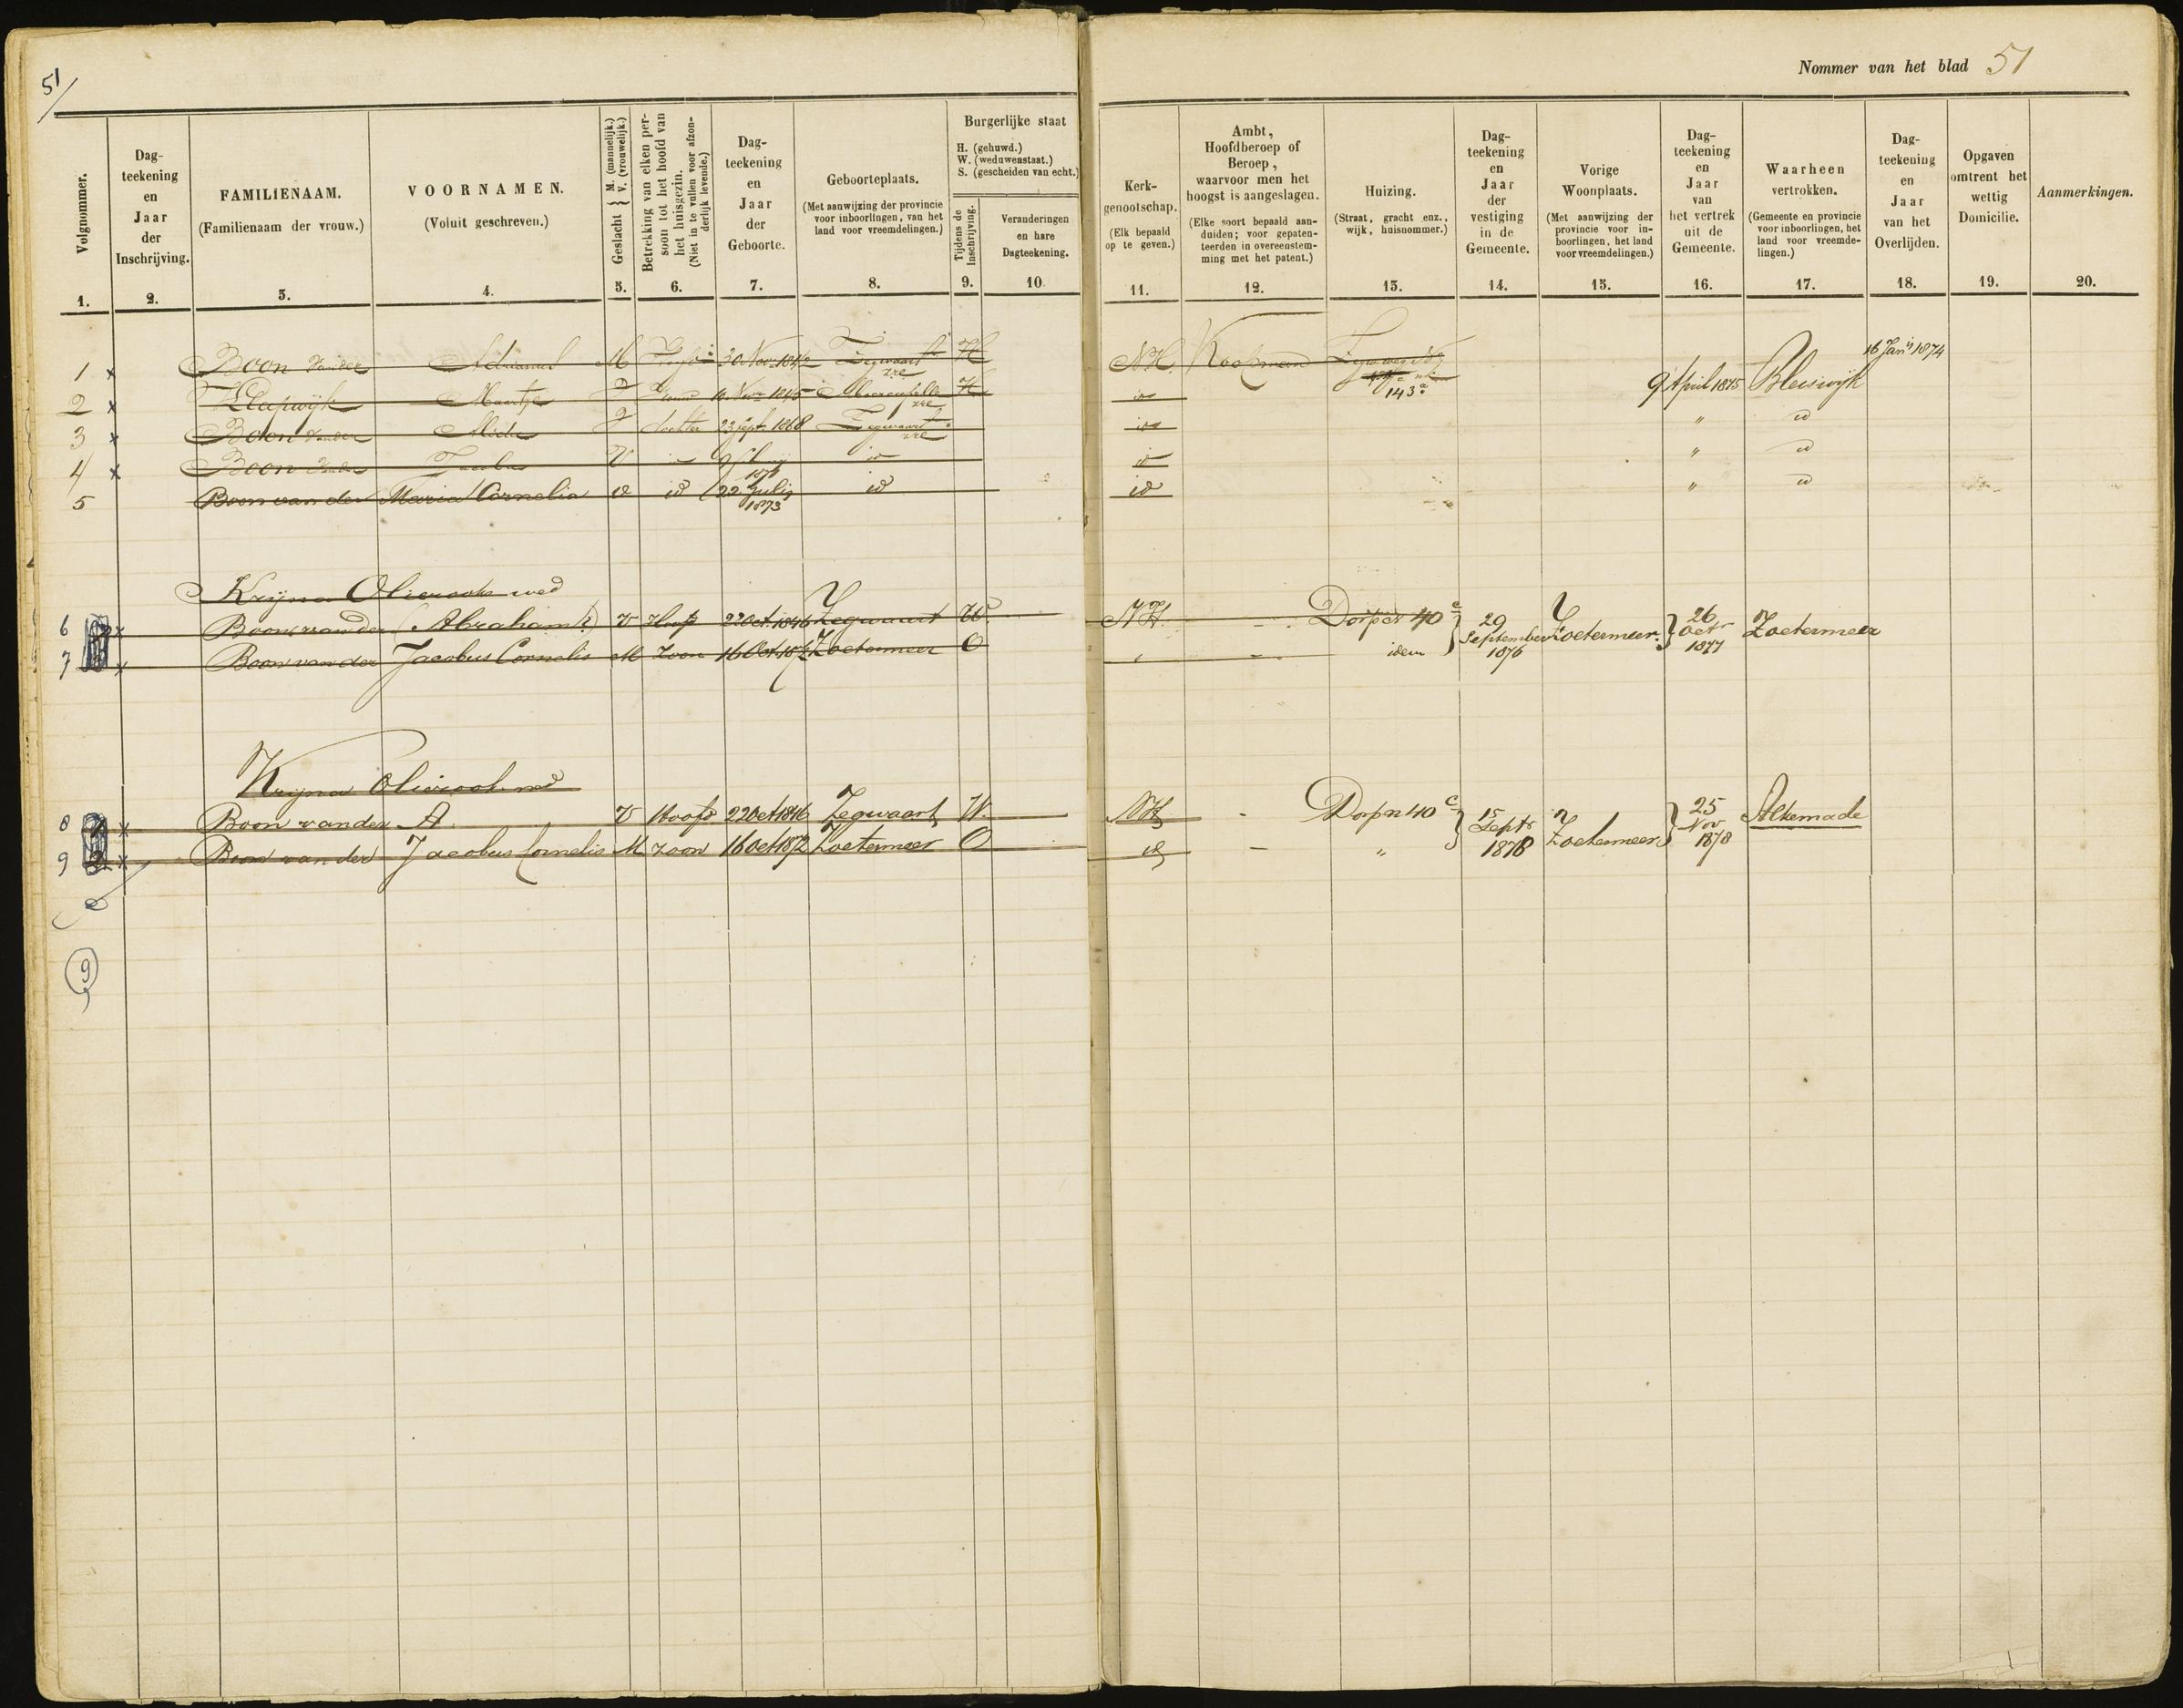 51
Nommer van het blad 51
Volgnommer.
Dag-
teekening
en
Jaar
der
Inschrijving.
FAMILIENAAM.
(Familienaam der vrouw.)
VOORNAMEN.
(Voluit geschreven.)
Geslacht } M. (mannelijk.) V. (vrouwelijk.)
Betrekking van elken per-
soon tot het hoofd van
het huisgezin.
(Niet in te vullen voor afzon-
derlijk levende.)
Dag-
teekening
en
Jaar
der
Geboorte.
Geboorteplaats.
(Met aanwijzing der provincie
voor inboorlingen, van het
land voor vreemdelingen.)
Burgerlijke staat
H. (gehuwd.)
W. (weduwenstaat.)
S. (gescheiden van echt.)
Tijdens de
Inschrijving.
Veranderingen
en hare
Dagteekening.
Kerk-
genootschap.
(Elk bepaald
op te geven.)
Ambt,
Hoofdberoep of
Beroep,
waarvoor men het
hoogst is aangeslagen.
(Elke soort bepaald aan-
duiden; voor gepaten-
teerden in overeenstem-
ming met het patent.)
Huizing.
(Straat, gracht enz.,
wijk, huisnommer.)
Dag-
teekening
en
Jaar
der
vestiging
in de
Gemeente.
Vorige
Woonplaats.
(Met aanwijzing der
provincie voor in-
boorlingen, het land
voor vreemdelingen.)
Dag-
teekening
en
Jaar
van
het vertrek
uit de
Gemeente.
Waarheen
vertrokken.
(Gemeente en provincie
voor inboorlingen, het
land voor vreemde-
lingen.)
Dag-
teekening
en
Jaar
van het
Overlijden.
Opgaven
omtrent het
wettig
Domicilie.
Aanmerkingen.
1. 2. 3. 4. 5. 6. 7. 8. 9. 10. 11. 12. 13. 14. 15. 16. 17. 18. 19. 20.
1 x Boon van der Adrianus M Hoofd 30 Nov 1842 Zegwaart H NH. Koopman 16 Jan 1874
zhe 143a
2 x Klapwijk Maartje Nov 1845 H id 9 April 1875 Bleiswijk
3 x Boon van der Alida dochter 23 Sept 1868 Zegwaart id " id
zhe
4 x Boon van der V id id " id
5 Boon van der Maria Cornelia V id 22 Julij id id " id
1873
Krijna Olierook wed
6 x Boon van der (Abraham) V Hoofd 22 Oct. 1846 Zegwaart W. NH. - Dorp 40 c } 29 Zoetermeer. } 26 Zoetermeer
September Oct
1876 1877
7 x Boon van der Jacobus Cornelis M Zoon 16 Oct 1872 Zoetermeer O " - idem
Krijna Olierook wed
8 x Boon van der A. V Hoofd 22 Oct 1846 Zegwaart W. NH - Dorp n 40 c } 15 Zoetermeer } 25 Alkemade
Sept Nov
1878 1878
9 x Boon van der Jacobus Cornelis M Zoon 16 Oct 1872 Zoetermeer O id - "
9